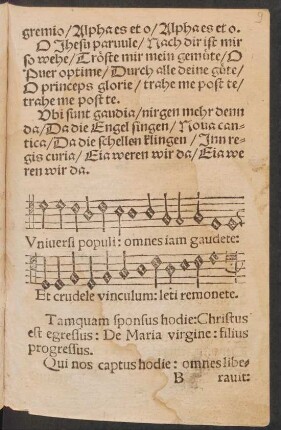 9
gremio/Alpha es et o/Alpha es et o.
O Jhesu paruule/Nach dir ist mir
so wehe/Tröste mir mein gemüte/O
Puer optime/Durch alle deine güte/
O princeps glorie/trahe me post te/
trahe me post te.
Vbi sunt gaudia/nirgen mehr denn
da/Da die Engel singen/Noua can-
tica/Da die schellen klingen/Inn re-
gis curia/Eia weren wir da/Eia we
ren wir da.
Vniuersi populi: omnes iam gaudete:
Et crudele vinculum: leti remonete.
Tamquam sponsus hodie:Christus
est egressus: De Maria virgine: filius
progressus.
Qui nos captus hodie: omnes libe-
B rauit: